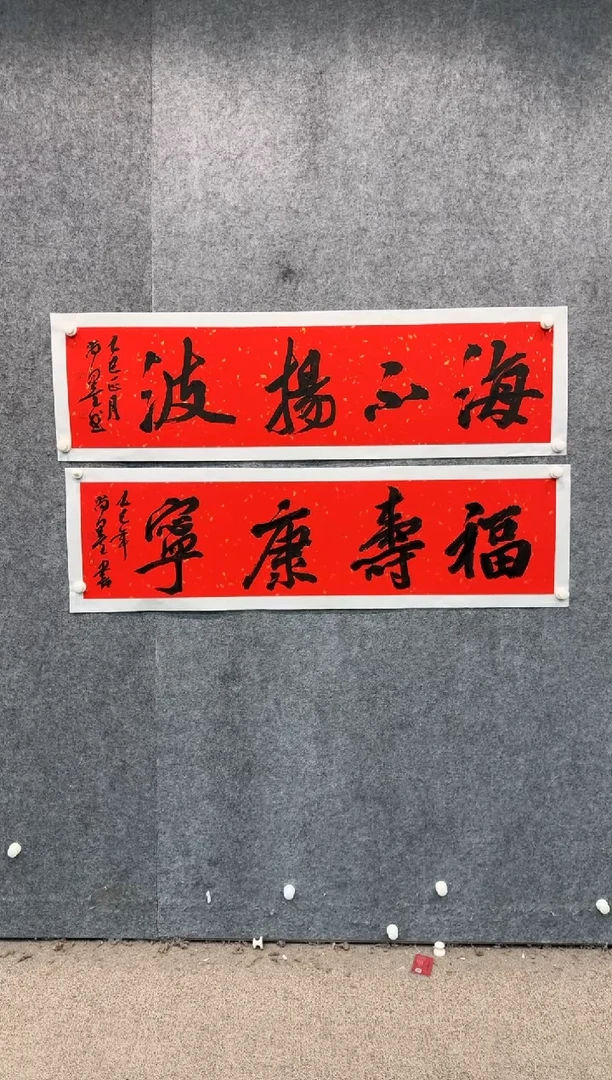 海不揚波
乙巳正月
福壽康寧
乙巳年